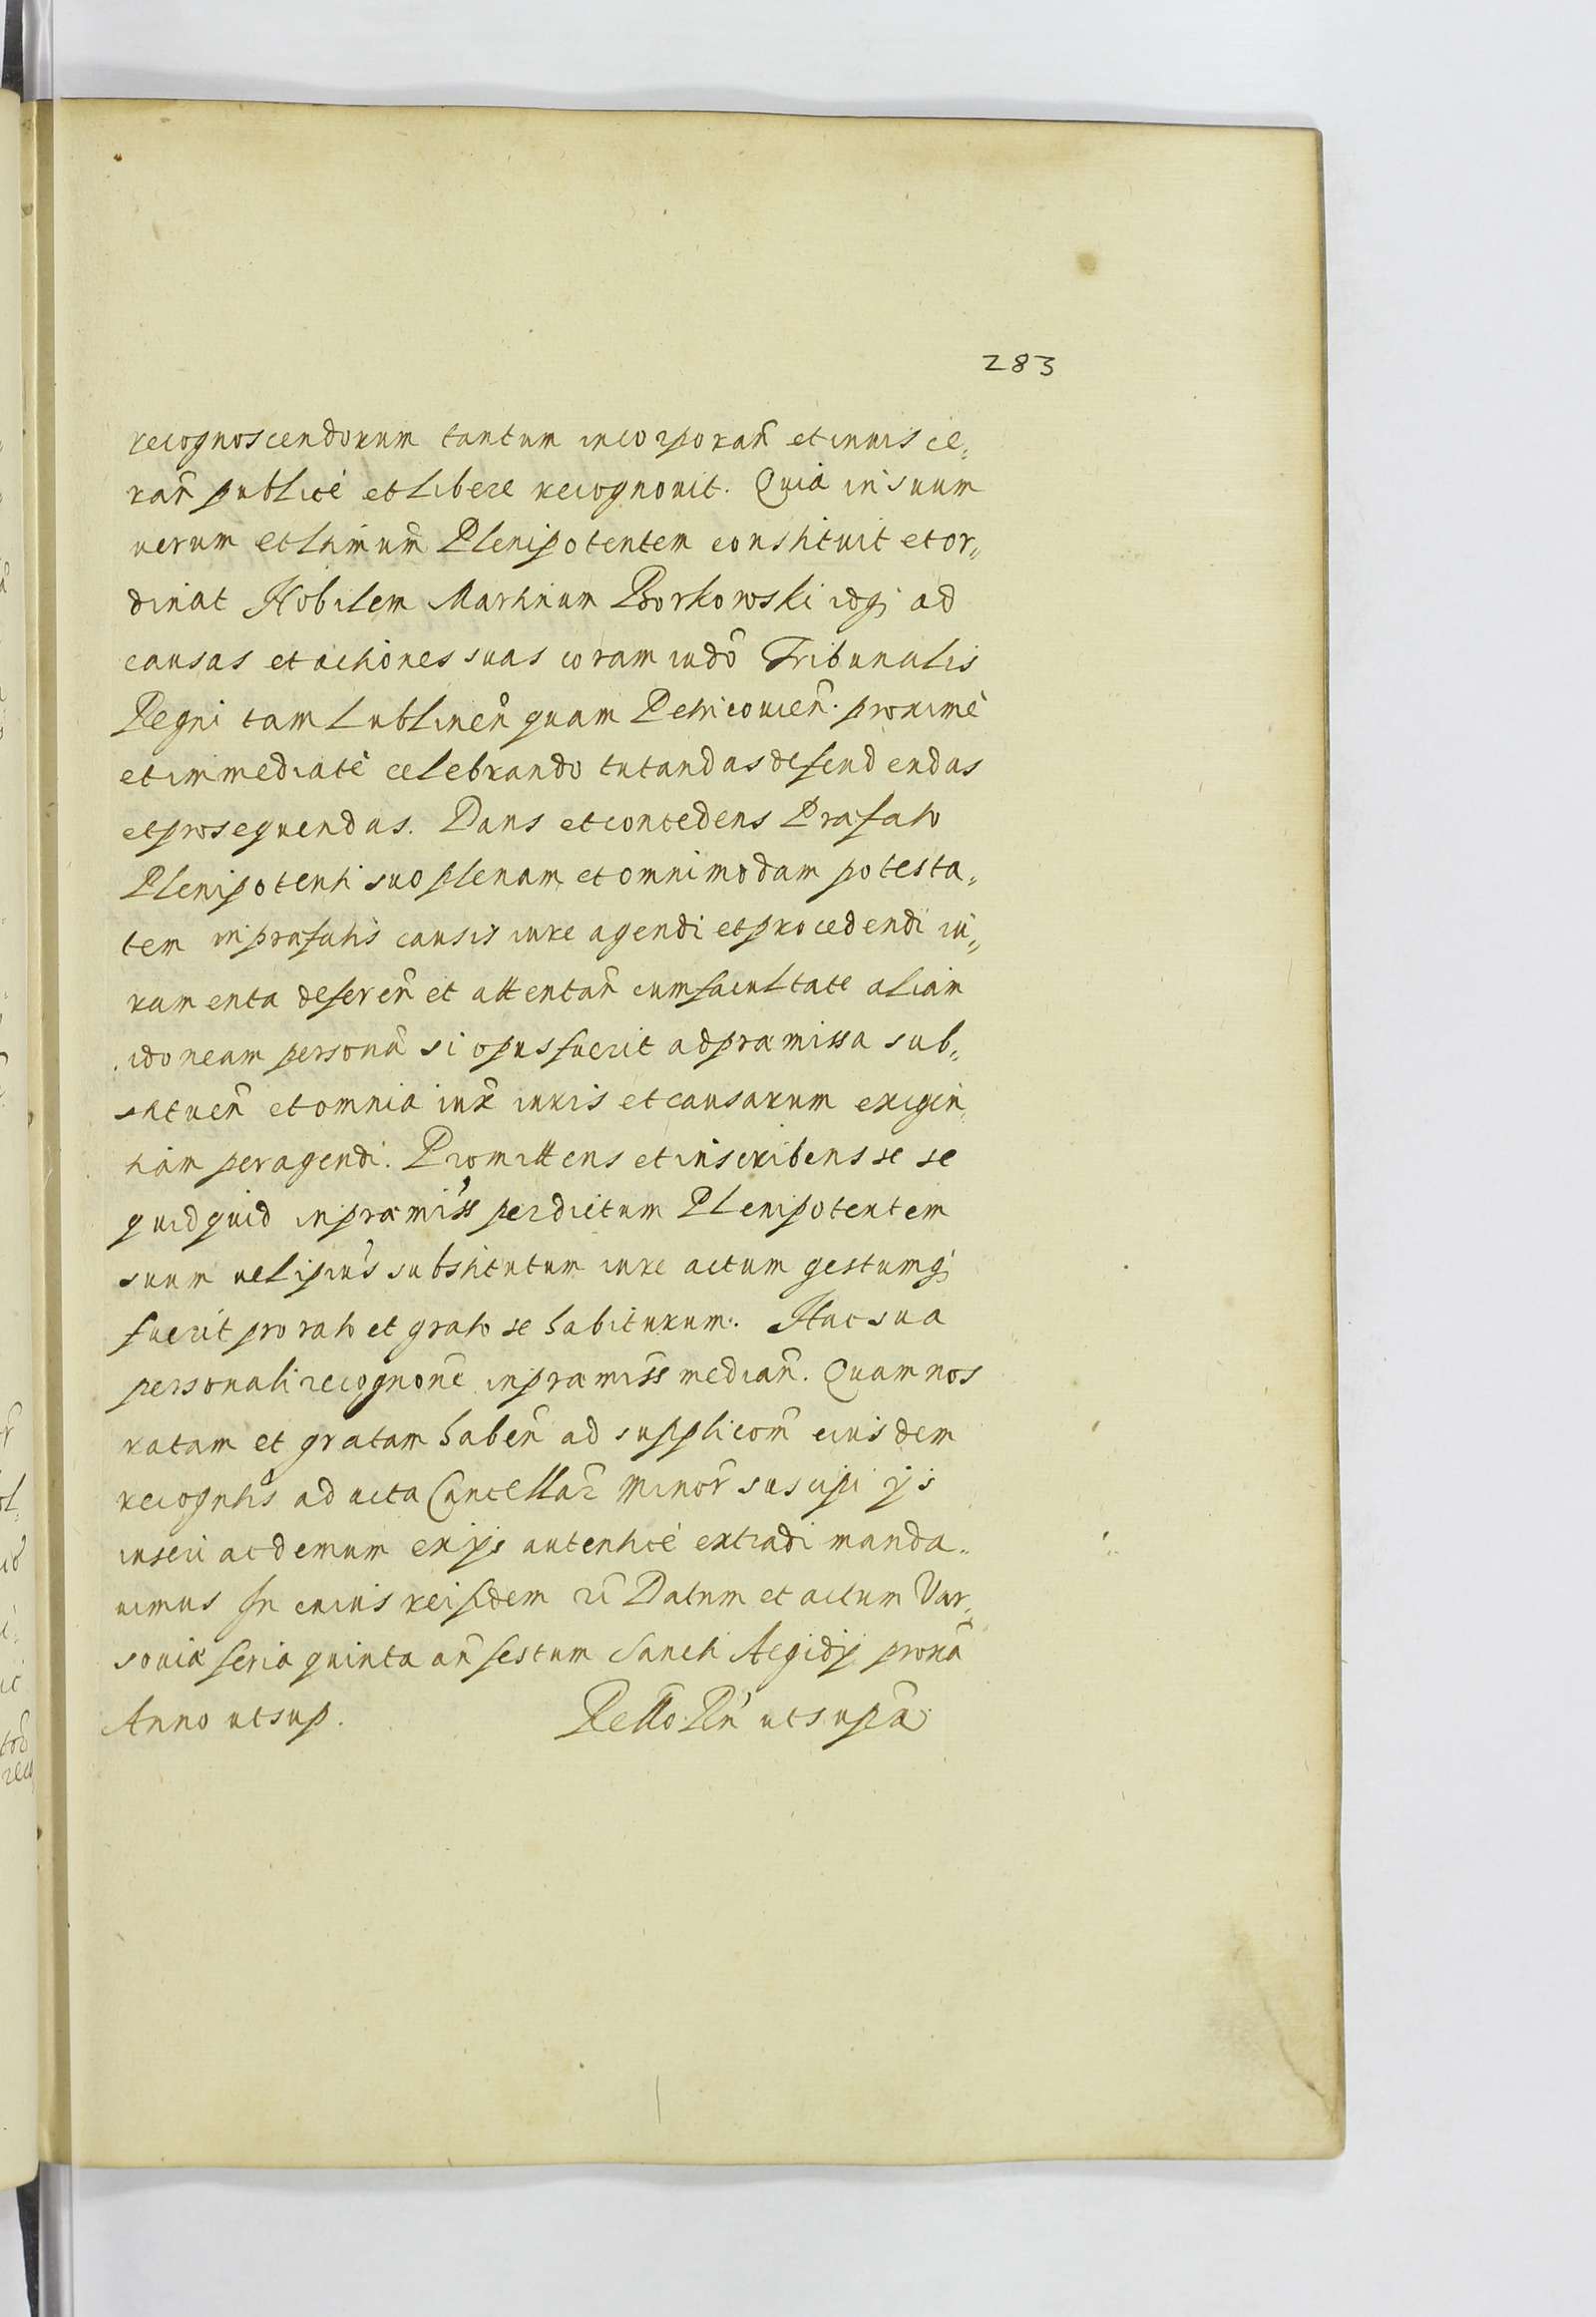 283
recognoscendorum tantum incorporan̄ et inuisce„
ran̄ publicè et libere recognouit. Quia in suum
uerum et ltimum̄ Plenipotentem constituit et or„
dinat Nobilem Martinum Borkowski idq; ad
causas et actiones suas coram iudō Tribunalis
Regni tam Lublinen̄ quam Petricouien̄. proximè
et immediatè celebrando tutandas defendendas
et prosequendas. Dans et concedens Præfato
Plenipotenti suo plenam et omnimodam potesta„
tem in præfatis causis iure agendi et procedendi iu„
ramenta deferen̄ et attentan̄ cum facultate aliam
idoneam personā si opus fuerit ad præmissa sub„
stituen̄ et omnia iux̄ iuris et causarum exigen„
tiam peragendi. Promittens et inscribens se se
quidquid in præmiss̄ per dictum Plenipotentem
suum uel ipius̄ substitutum iure actum gestumq;
fuerit pro rato et grato se habiturum. Hac sua
personali recognōne in præmiss̄ median̄. Quam nos
ratam et gratam haben̄ ad supplicom̄ eiusdem
recogntis̄ ad acta Cancellar̄ minor̄ suscipi ijs
inseri ac demum ex ijs autenticè extradi manda„
uimus In cuius rei fidem r̄ Datum et actum Var„
souiæ feria quinta an̄ festum Sancti Aegidij proxā
Anno ut sup. Rello Pn̄ ut supā